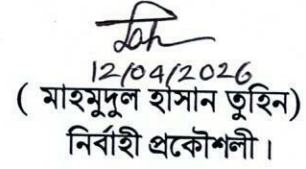 12/04/2026
( মাহমুদুল হাসান তুহিন)
নির্বাহী প্রকৌশলী।